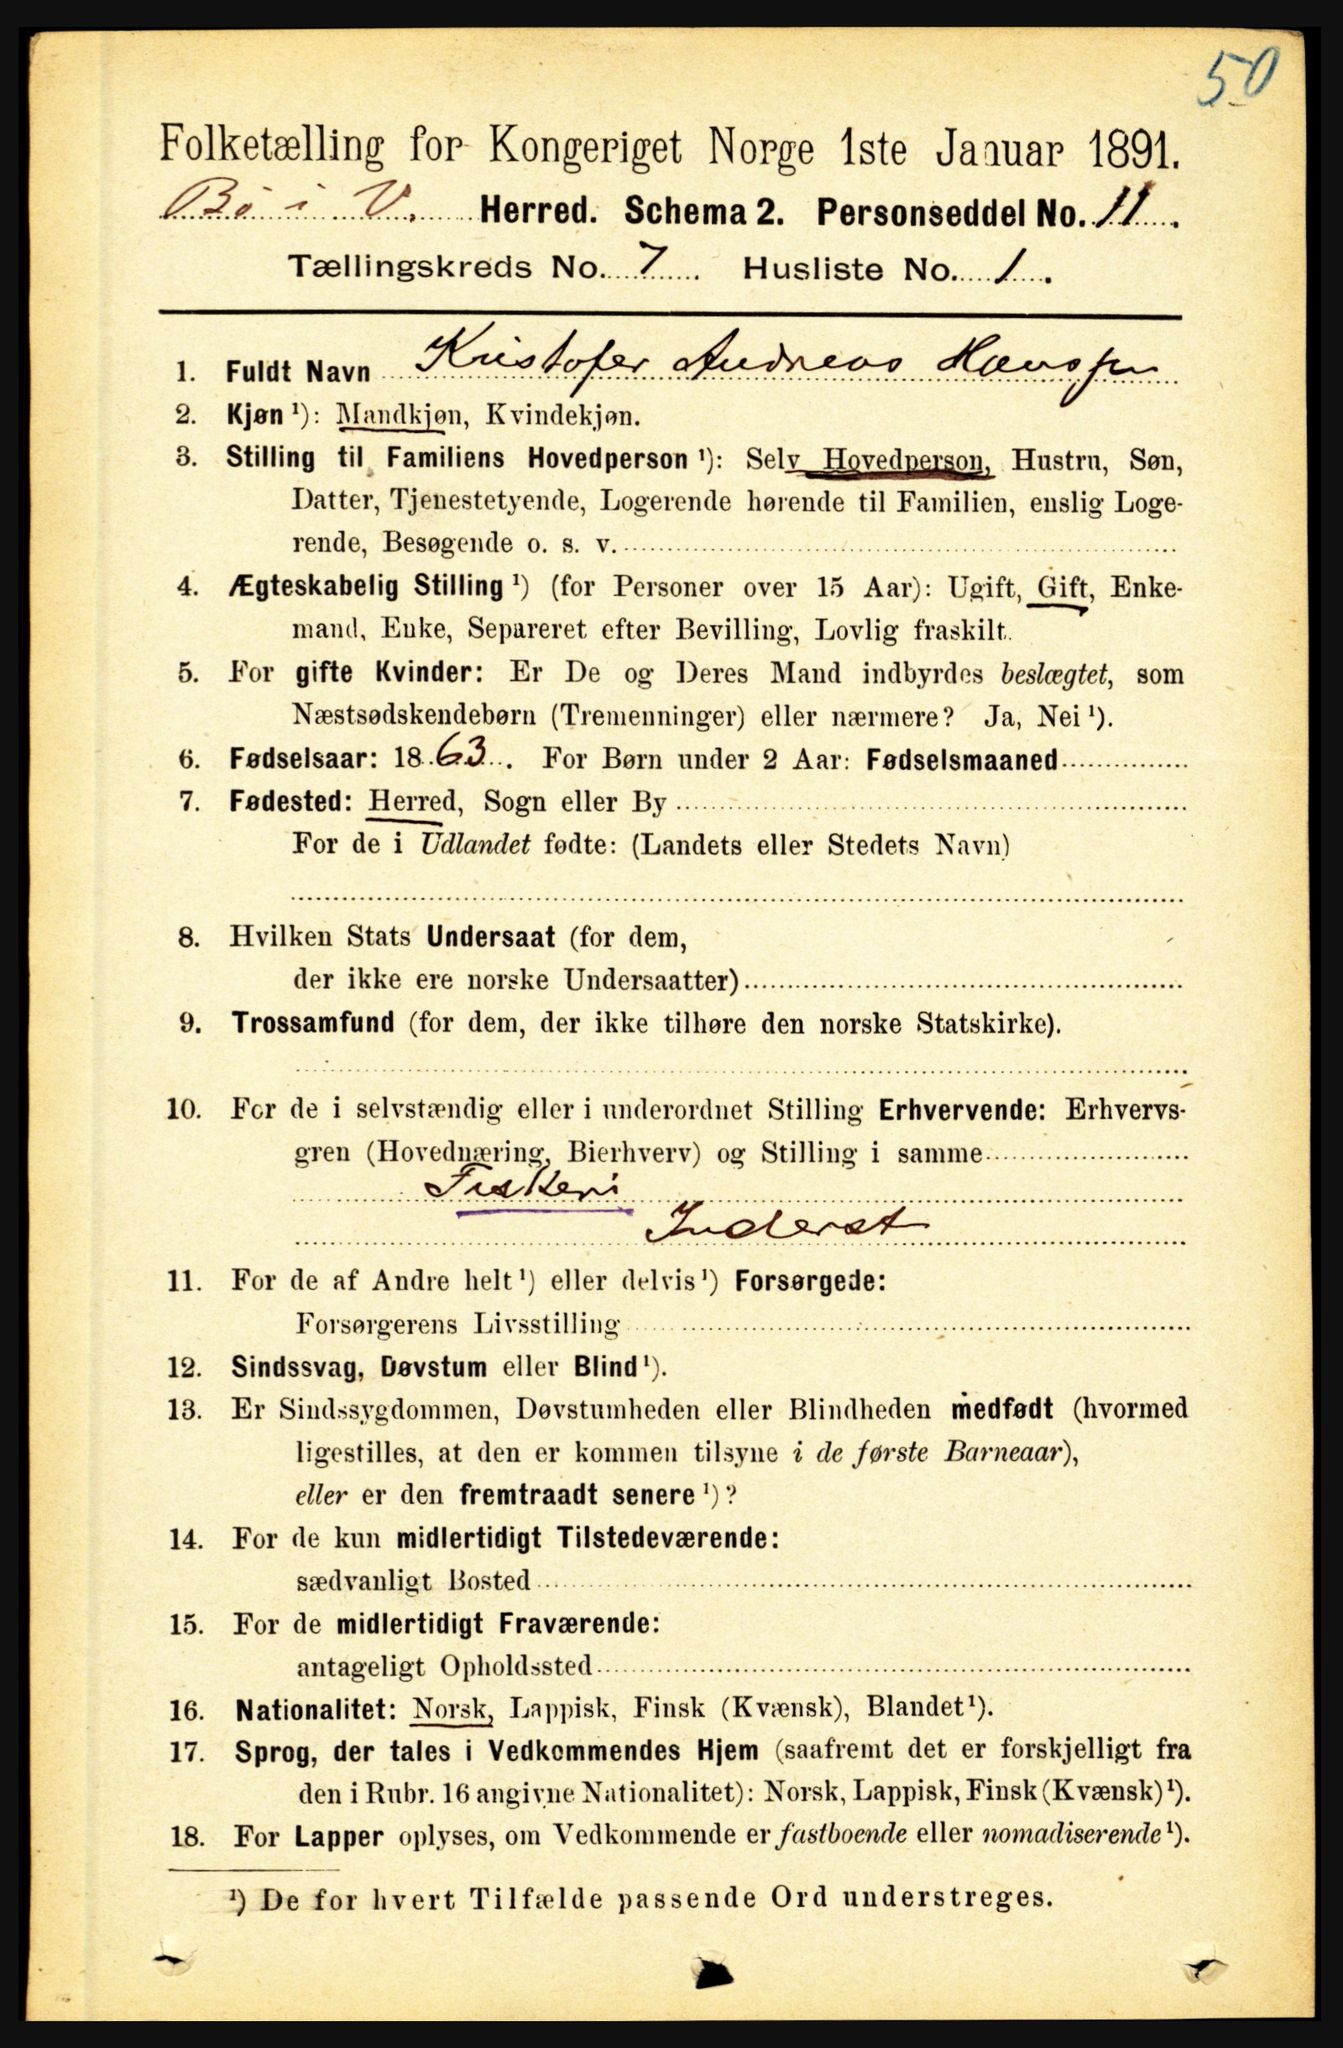 50
Folketælling for Kongeriget Norge 1ste Januar 1891.
Bö i V. Herred. Schema 2. Personseddel No. 11.
Tællingskreds No. 7. Husliste No. 1.
1. Fuldt Navn Kristofer Andreas Hansen
2. Kjøn ¹): Mandkjøn, Kvindekjøn.
3. Stilling til Familiens Hovedperson ¹): Selv Hovedperson, Hustru, Søn,
Datter, Tjenestetyende, Logerende hørende til Familien, enslig Loge-
rende, Besøgende o. s. v.
4. Ægteskabelig Stilling ¹) (for Personer over 15 Aar): Ugift, Gift, Enke-
mand, Enke, Separeret efter Bevilling, Lovlig fraskilt.
5. For gifte Kvinder: Er De og Deres Mand indbyrdes beslægtet, som
Næstsødskendebørn (Tremenninger) eller nærmere? Ja, Nei ¹).
6. Fødselsaar: 1863. For Børn under 2 Aar: Fødselsmaaned
7. Fødested: Herred, Sogn eller By
For de i Udlandet fødte: (Landets eller Stedets Navn)
8. Hvilken Stats Undersaat (for dem,
der ikke ere norske Undersaatter)
9. Trossamfund (for dem, der ikke tilhøre den norske Statskirke).
10. For de i selvstændig eller i underordnet Stilling Erhvervende: Erhvervs-
gren (Hovednæring, Bierhverv) og Stilling i samme
Fiskeri
Inderst
11. For de af Andre helt ¹) eller delvis ¹) Forsørgede:
Forsørgerens Livsstilling
12. Sindssvag, Døvstum eller Blind ¹).
13. Er Sindssygdommen, Døvstumheden eller Blindheden medfødt (hvormed
ligestilles, at den er kommen tilsyne i de første Barneaar),
eller er den fremtraadt senere ¹)?
14. For de kun midlertidigt Tilstedeværende:
sædvanligt Bosted
15. For de midlertidigt Fraværende:
antageligt Opholdssted
16. Nationalitet: Norsk, Lappisk, Finsk (Kvænsk), Blandet ¹).
17. Sprog, der tales i Vedkommendes Hjem (saafremt det er forskjelligt fra
den i Rubr. 16 angivne Nationalitet): Norsk, Lappisk, Finsk (Kvænsk) ¹).
18. For Lapper oplyses, om Vedkommende er fastboende eller nomadiserende ¹).
¹) De for hvert Tilfælde passende Ord understreges.